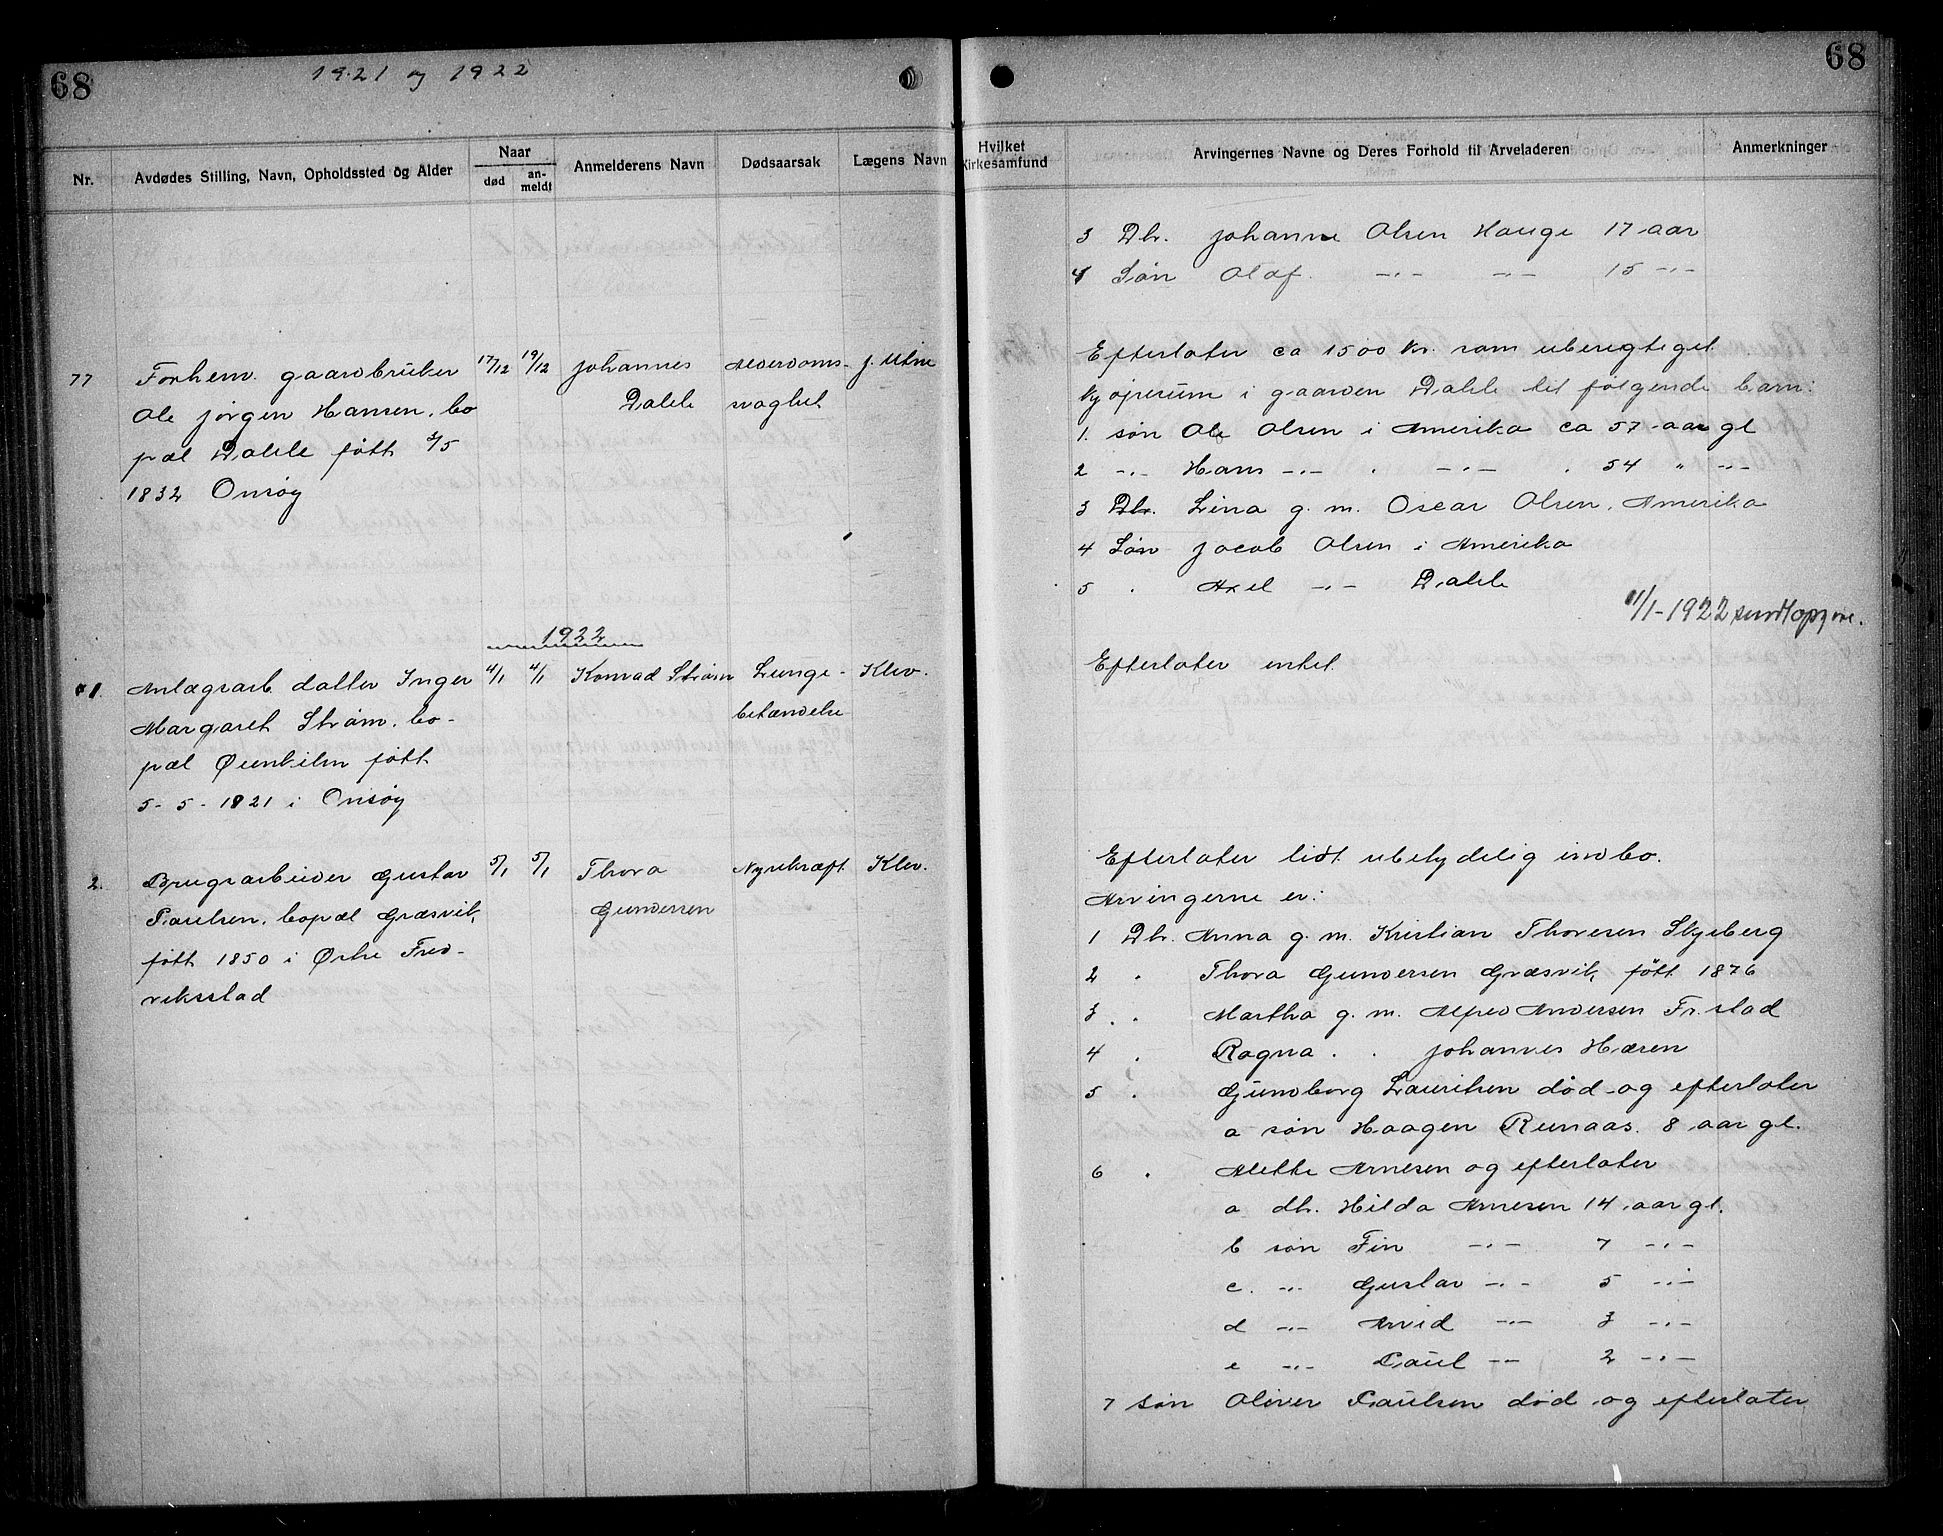 68
1921 og 1922
Nr.
Avdødes Stilling, Navn, Opholdssted og Alder
Naar
død
an-
meldt
Anmelderens Navn
Dødsaarsak
Lægens Navn
77
Forhem. gaardbruker
Ole Jørgen Hansen, bo
pæl Dalele født 3/5
1832 Onsøy
17/12
19/12
Johannes
Dalele
Alderdoms-
svaghet
J. Utne
1922
1.
Anlægsarb. datter Inger
Margaret Strøm, bo-
pæl Ørenkilen født
5-5-1821 i Onsøy
4/1
4/1
Konrad Strøm
Lunge-
betændelse
Klev.
2.
Brugsarbeider Gustav
Paulsen, bopæl Græsvik,
født 1850 i Østre Fred-
riksstad
5/1
5/1
Thora
Gundersen
Nyrekræft
Klev.
68
Hvilket
Kirkesamfund
Arvingernes Navne og Deres Forhold til Arveladeren
Anmerkninger
3 Dtr. Johanne Olsen Hauge 17 aar
4 Søn Olaf -"- -"- 15 -"-
Efterlater ca 1500 kr. som uberigtiget
kjøpesum i gaarden Dalele til følgende barn:
1. søn Ole Olsen i Amerika ca 57 aar gl
2 -"- Hans -"- . -"- . 54 " -"-
3 Dtr. Lina g. m. Oscar Olsen, Amerika
4 Søn Jacob Olsen i Amerika
5 . Axel -"- Dalele
11/1-1922 sendt opgave.
Efterlater intet.
Efterlater lidt ubetydelig indbo.
Arvingerne er:
1 Dtr. Anna g. m. Kristian Thoresen Skjeberg
2 . Thora Gundersen Græsvik, født 1876
3 . . Martha g. m. Alfred Andersen Fr.stad
4 . Ragna . . Johannes Hæren
5 . Gundborg Lauritsen død og efterlater
a søn Haagen Runaas. 8 aar gl.
6 . Alette Arnesen og efterlater
a dtr. Hilda Arnesen 14 aar gl.
b søn Fin -"- 7 -"-
c. -"- Gustav -"- 5 -"-
d -"- Arvid -"- 3 -"-
e -"- Paul -"- 2 -"-
7 søn Oliver Paulsen død og efterlater